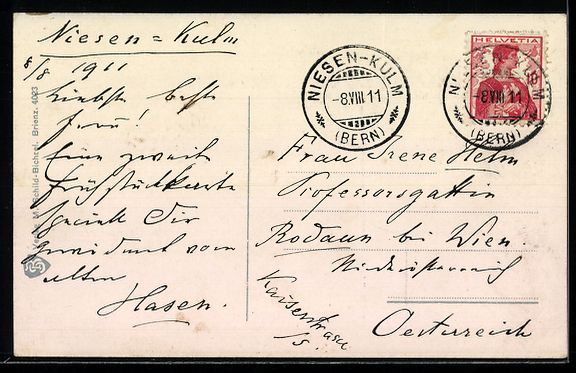 Niesen=Kulm
8/8 1911
Liebste beste
Frau!
Eine zweite
Frühstückkarte
speciell Dir
gewidmet vom
alten
Hasen.
NIESEN-KULM
-8.VIII.11
(BERN)
HELVETIA
NIESEN-KULM
-8.VIII.11
(BERN)
Frau Irene Helm
Professorsgattin
Rodaun bei Wien.
Niederösterreich
Kaiserstrasse
5.
Oesterreich
Brienz. 4023